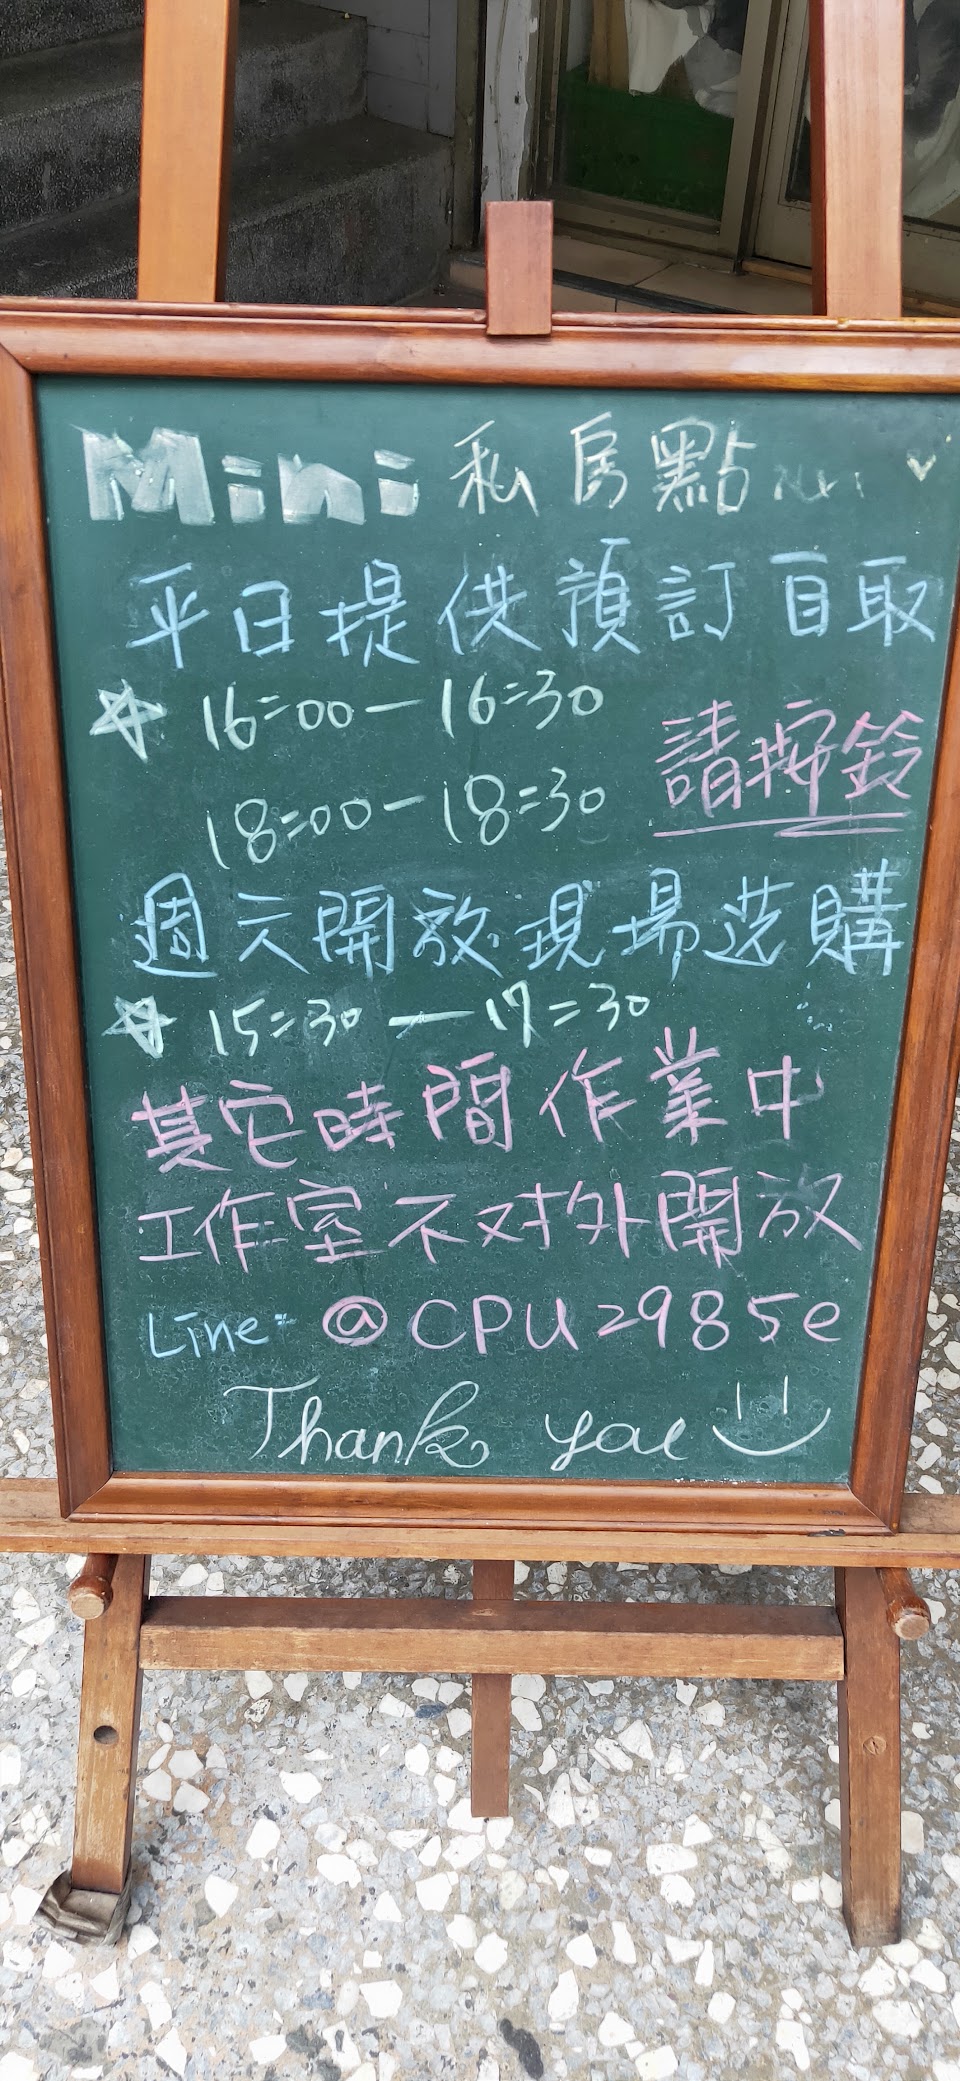 Mini 私房點
平日提供預訂自取
☆ 16:00 — 16:30
請按鈴
18:00 — 18:30
週六開放現場选購
☆ 15:30 — 17:30
其它時間作業中
工作室不对外開放
Line: @CPU2985e
Thank you